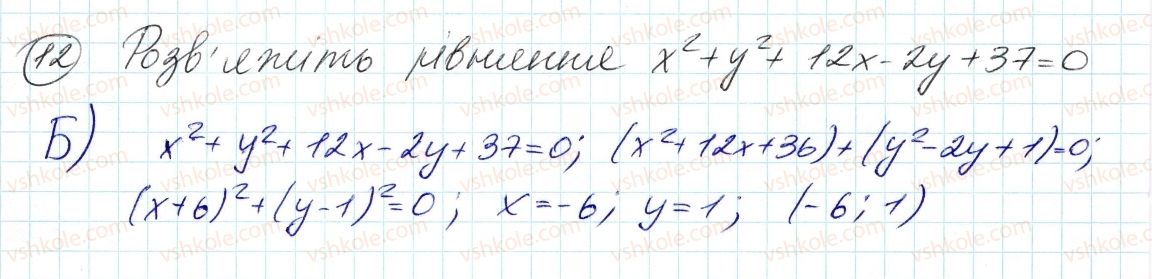 12 Розв'яжіть рівняння x²+y²+12x-2y+37=0
Б) x²+y²+12x-2y+37=0; (x²+12x+36)+(y²-2y+1)=0;
(x+6)²+(y-1)²=0; x=-6; y=1; (-6; 1)